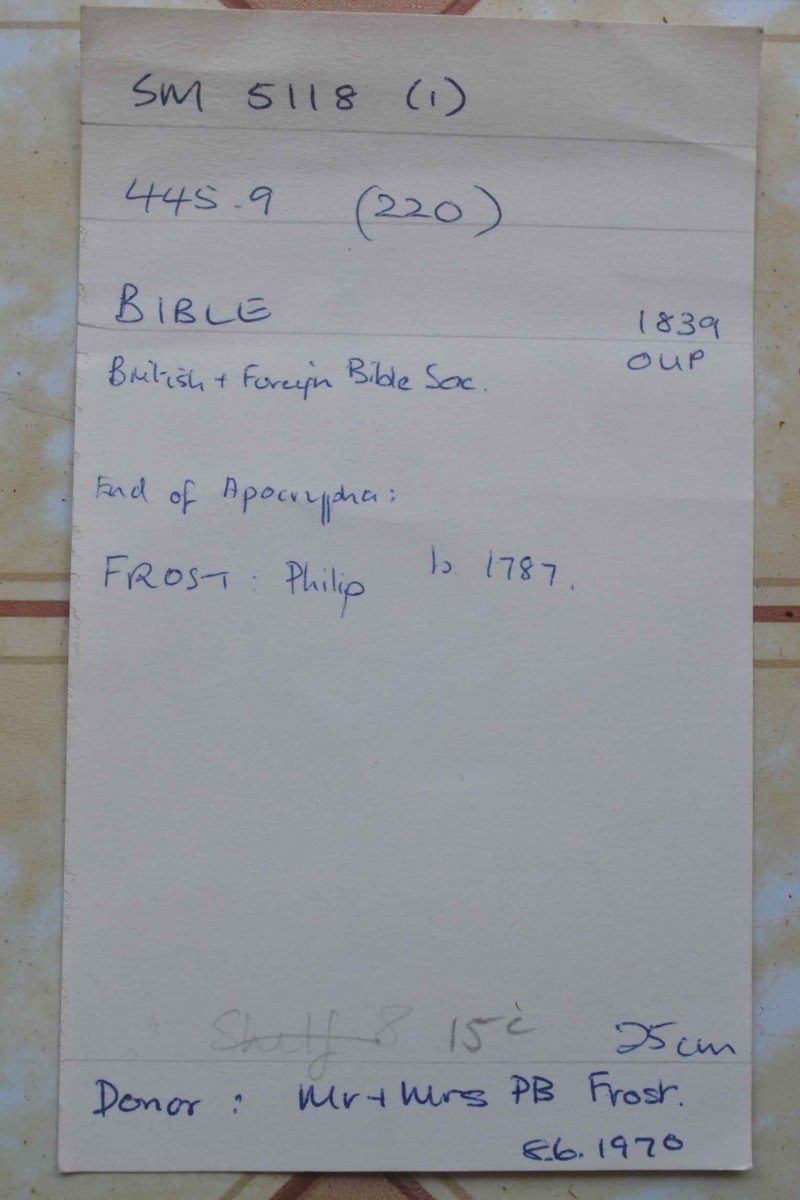 SM 5118 (1)
445.9 (220)
BIBLE 1839
British + Foreign Bible Soc. OUP
End of Apocrypha:
FROST: Philip b 1787.
Shelf 8 15c 25cm
Donor: Mr + Mrs PB Frost.
8.6.1970